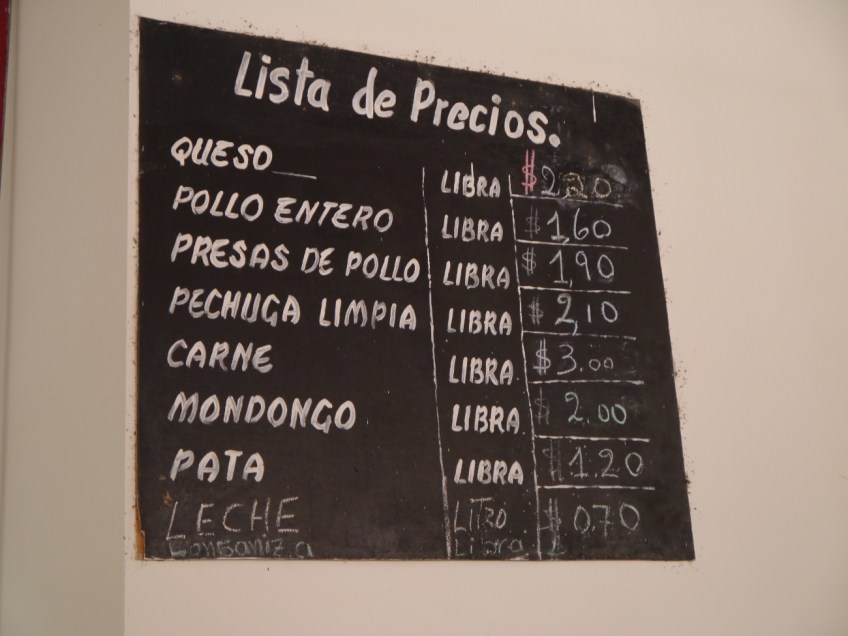 Lista de Precios.
QUESO__ LIBRA $2.20
POLLO ENTERO LIBRA $1,60
PRESAS DE POLLO LIBRA $1,90
PECHUGA LIMPIA LIBRA $2,10
CARNE LIBRA $3.00
MONDONGO LIBRA $2.00
PATA LIBRA $1.20
LECHE LITRO $0.70
Longaniza Libra